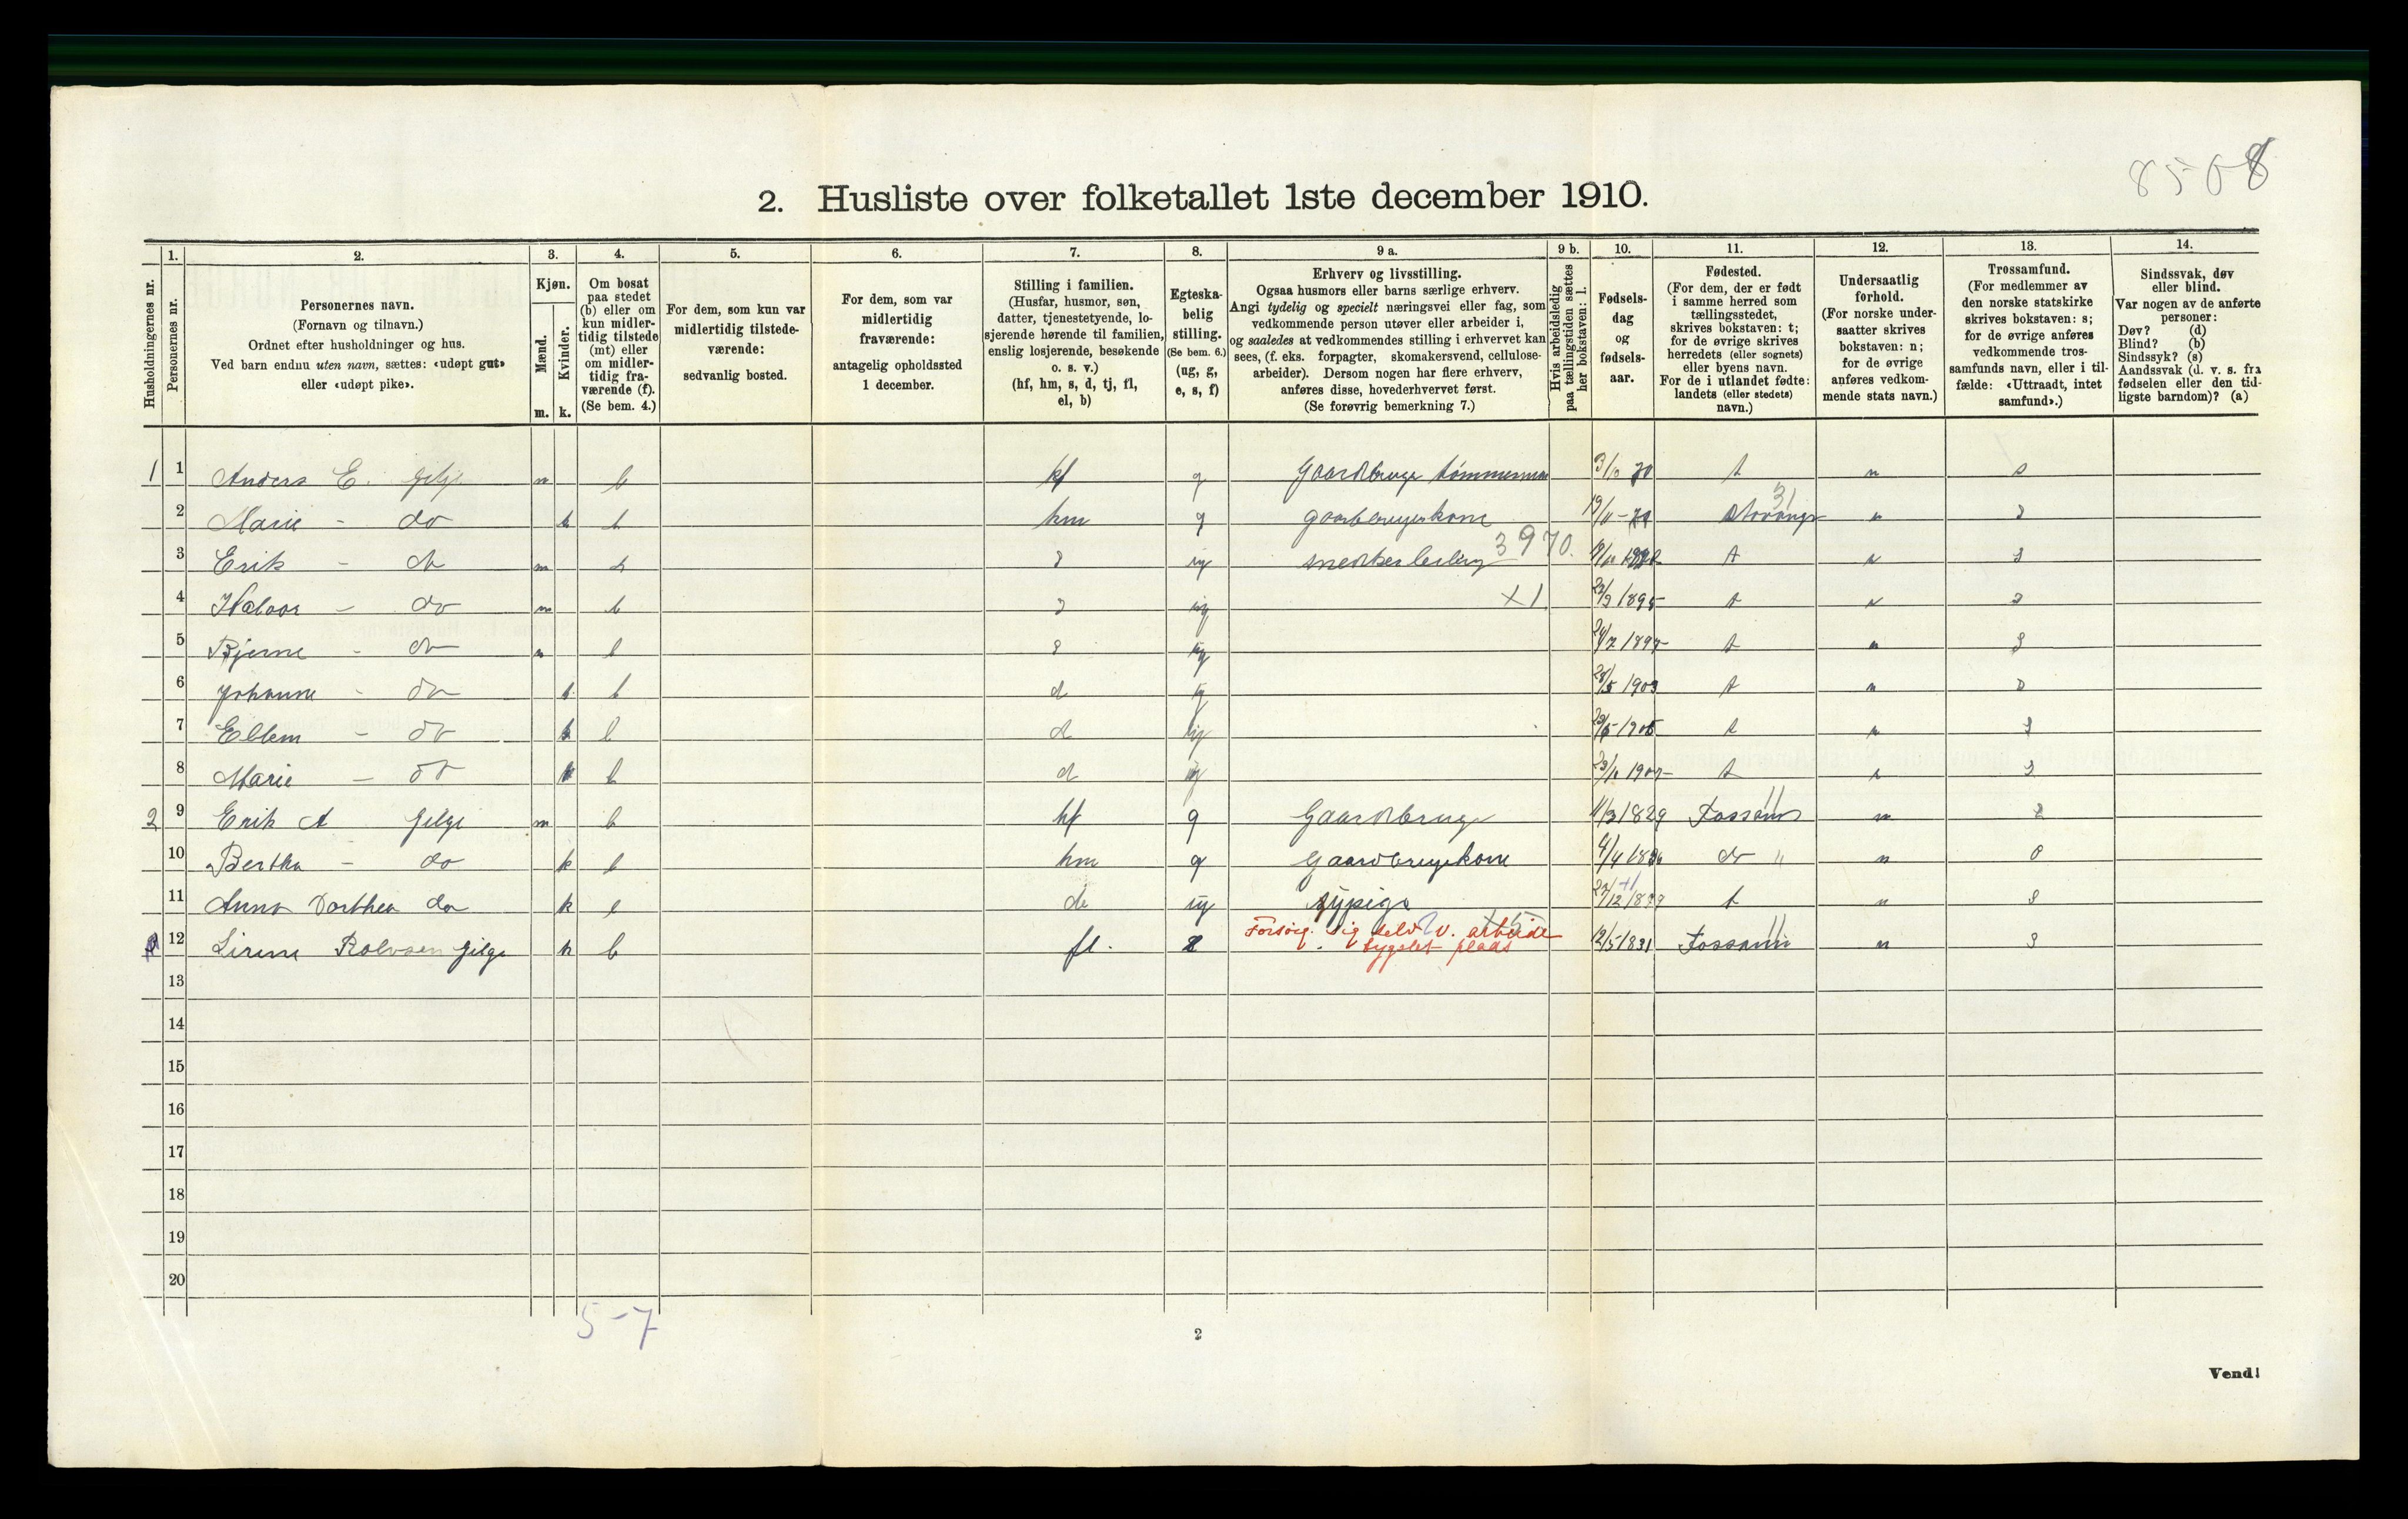 8508
2. Husliste over folketallet 1ste december 1910.
Husholdningernes nr.
1.
Personernes nr.
2.
Personernes navn.
(Fornavn og tilnavn.)
Ordnet efter husholdninger og hus.
Ved barn endnu uten navn, sættes: «udøpt gut»
eller «udøpt pike».
3.
Kjøn.
Mænd.
Kvinder.
m. k.
4.
Om bosat
paa stedet
(b) eller om
kun midler-
tidig tilstede
(mt) eller
om midler-
tidig fra-
værende (f).
(Se bem. 4.)
5.
For dem, som kun var
midlertidig tilstede-
værende:
sedvanlig bosted.
6.
For dem, som var
midlertidig
fraværende:
antagelig opholdssted
1 december.
7.
Stilling i familien.
(Husfar, husmor, søn,
datter, tjenestetyende, lo-
sjerende hørende til familien,
enslig losjerende, besøkende
o. s. v.)
(hf, hm, s, d, tj, fl,
el, b)
8.
Egteska-
belig
stilling.
(Se bem. 6.)
(ug, g,
e, s, f)
9 a.
Erhverv og livsstilling.
Ogsaa husmors eller barns særlige erhverv.
Angi tydelig og specielt næringsvei eller fag, som
vedkommende person utøver eller arbeider i,
og saaledes at vedkommendes stilling i erhvervet kan
sees, (f. eks. forpagter, skomakersvend, cellulose-
arbeider). Dersom nogen har flere erhverv,
anføres disse, hovederhvervet først.
(Se forøvrig bemerkning 7.)
9 b.
Hvis arbeidsledig
paa tællingstiden sættes
her bokstaven: l.
10.
Fødsels-
dag
og
fødsels-
aar.
11.
Fødested.
(For dem, der er født
i samme herred som
tællingsstedet,
skrives bokstaven: t;
for de øvrige skrives
herredets (eller sognets)
eller byens navn.
For de i utlandet fødte:
landets (eller stedets)
navn.)
12.
Undersaatlig
forhold.
(For norske under-
saatter skrives
bokstaven: n;
for de øvrige
anføres vedkom-
mende stats navn.)
13.
Trossamfund.
(For medlemmer av
den norske statskirke
skrives bokstaven: s;
for de øvrige anføres
vedkommende tros-
samfunds navn, eller i til-
fælde: «Uttraadt, intet
samfund».)
14.
Sindssvak, døv
eller blind.
Var nogen av de anførte
personer:
Døv? (d)
Blind? (b)
Sindssyk? (s)
Aandssvak (d. v. s. fra
fødselen eller den tid-
ligste barndom)? (a)
1 1 Anders E. Gilje m b hf g Gaardbruger tømmerman 3/10 70 t n s
2 Marie - do k b hm g gaardbrugerkone 19/11 - t n s
3 Erik - do m b s ug snedkerlerling 3970. t n s
4 - do m b s ug x1 23/9 1895 t n s
5 Bjerne - do m b s ug 24/7 1897 t n s
6 Johanne - do k b d ug 28/5 1903 t n s
7 Ellem - do k b d ug t n s
8 Marie - do k b d ug t n s
2 9 Erik A Gilje m b hf g Gaardbruge 11/3 1829 n s
10 Bertha - do k b hm g Gaardbrugerkone do " n s
11 Anna Dorthea do k b d ug sypige t n s
12 Gilje k b fl. Forsørg. sig selv v. arbeide 12/5 1831 n s
13
14
15
16
17
18
19
20
5-7
2
Vend!